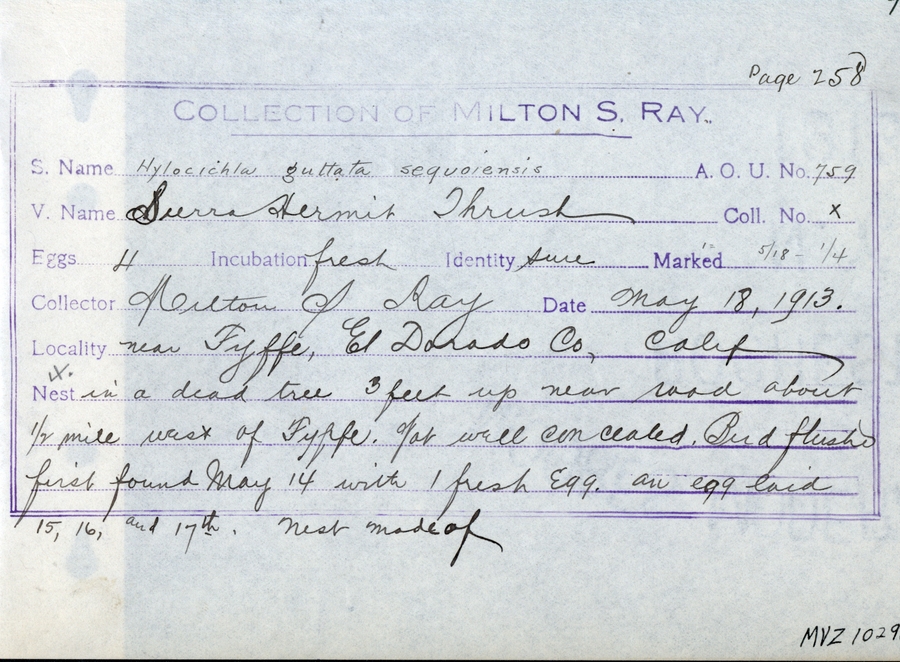 Page 258
COLLECTION OF MILTON S. RAY.
S. Name Hylocichla guttata sequoiensis A. O. U. No. 759
V. Name Sierra Hermit Thrush Coll. No. x
Eggs 4 Incubation fresh Identity sure Marked 5/18 - 1/4
Collector Milton S Ray Date May 18, 1913.
Locality near Fyffe, El Dorado Co, Calif
Nest in a dead tree 3 feet up near road about
1/2 mile west of Fyffe. Not well concealed. Bird flushed
first found May 14 with 1 fresh Egg. an egg laid
15, 16, and 17th. Nest made of
MVZ 1029